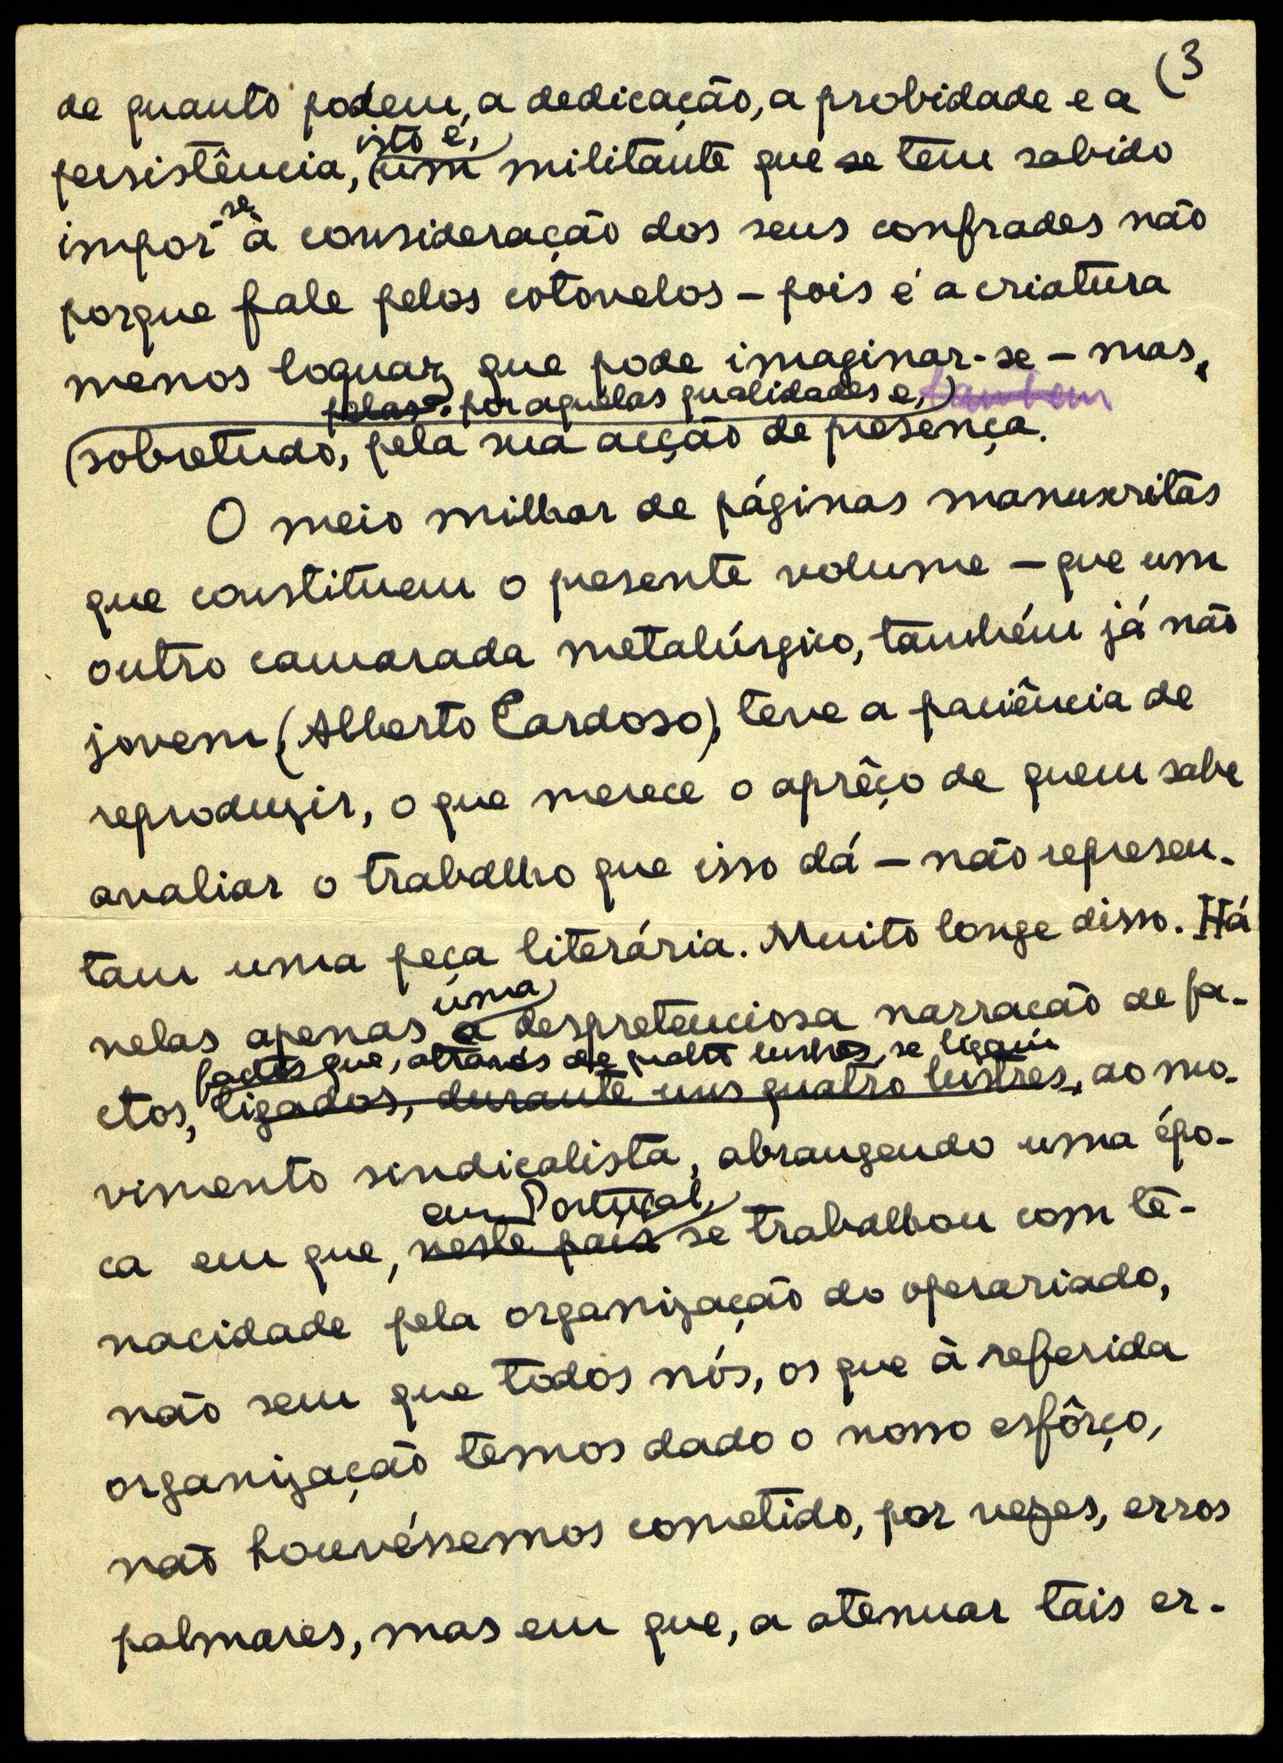 (3
de quanto podem, a dedicação, a probidade e a
isto é,
persistência, um militante que se tem sabido
se
impor- à consideração dos seus confrades não
porque fale pelos cotovelos – pois é a criatura
menos loquaz que pode imaginar-se – mas,
pelas por aquelas qualidades e, também
sobretudo, pela sua acção de presença.
O meio milhar de páginas manuscritas
que constituem o presente volume – que um
outro camarada metalúrgico, também já não
jovem (Alberto Cardoso), teve a paciência de
reproduzir, o que merece o aprêço de quem sabe
avaliar o trabalho que isso dá – não represen-
tam uma peça literária. Muito longe disso. Há
uma
nelas apenas a despretenciosa narração de fa-
factos que, através de quatro lustros, se ligam
ctos, ligados, durante uns quatro lustres, ao mo-
vimento sindicalista, abrangendo uma épo-
em Portugal,
ca em que, neste país se trabalhou com te-
nacidade pela organização do operariado,
não sem que todos nós, os que à referida
organização temos dado o nosso esfôrço,
não houvéssemos cometido, por vezes, erros
palmares, mas em que, a atenuar tais er-